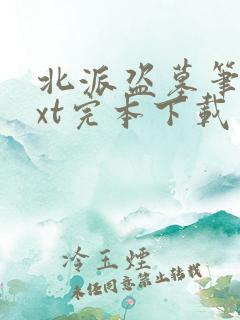 北派盗墓笔
xt完本下载
冷玉烟
未经同意禁止转载